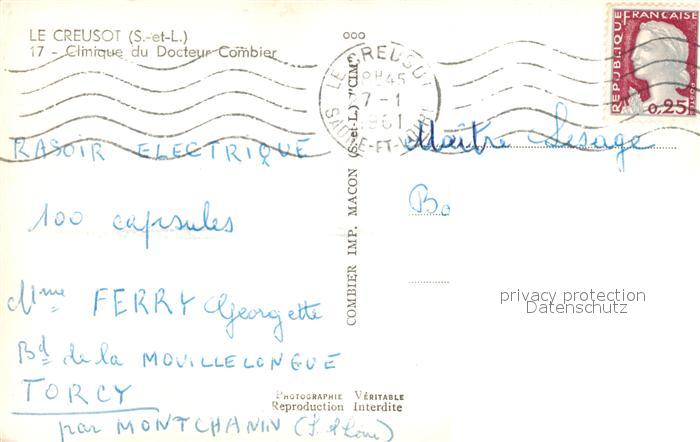 LE CREUSOT (S.-et-L.)
17 - Clinique du Docteur Combier
RASOIR ELECTRIQUE
100 capsules
Mme FERRY Georgette
Bd de la MOUILLELONGUE
TORCY
par MONTCHANIN (S. et Loire)
PHOTOGRAPHIE VÉRITABLE
Reproduction Interdite
COMBIER IMP. MACON (S.-et-L.) "CIM"
LE CREUSOT
7-1
1961
SAONE-ET-LOIRE
REPUBLIQUE FRANÇAISE
0,25F
Maître Lesage
privacy protection
Datenschutz